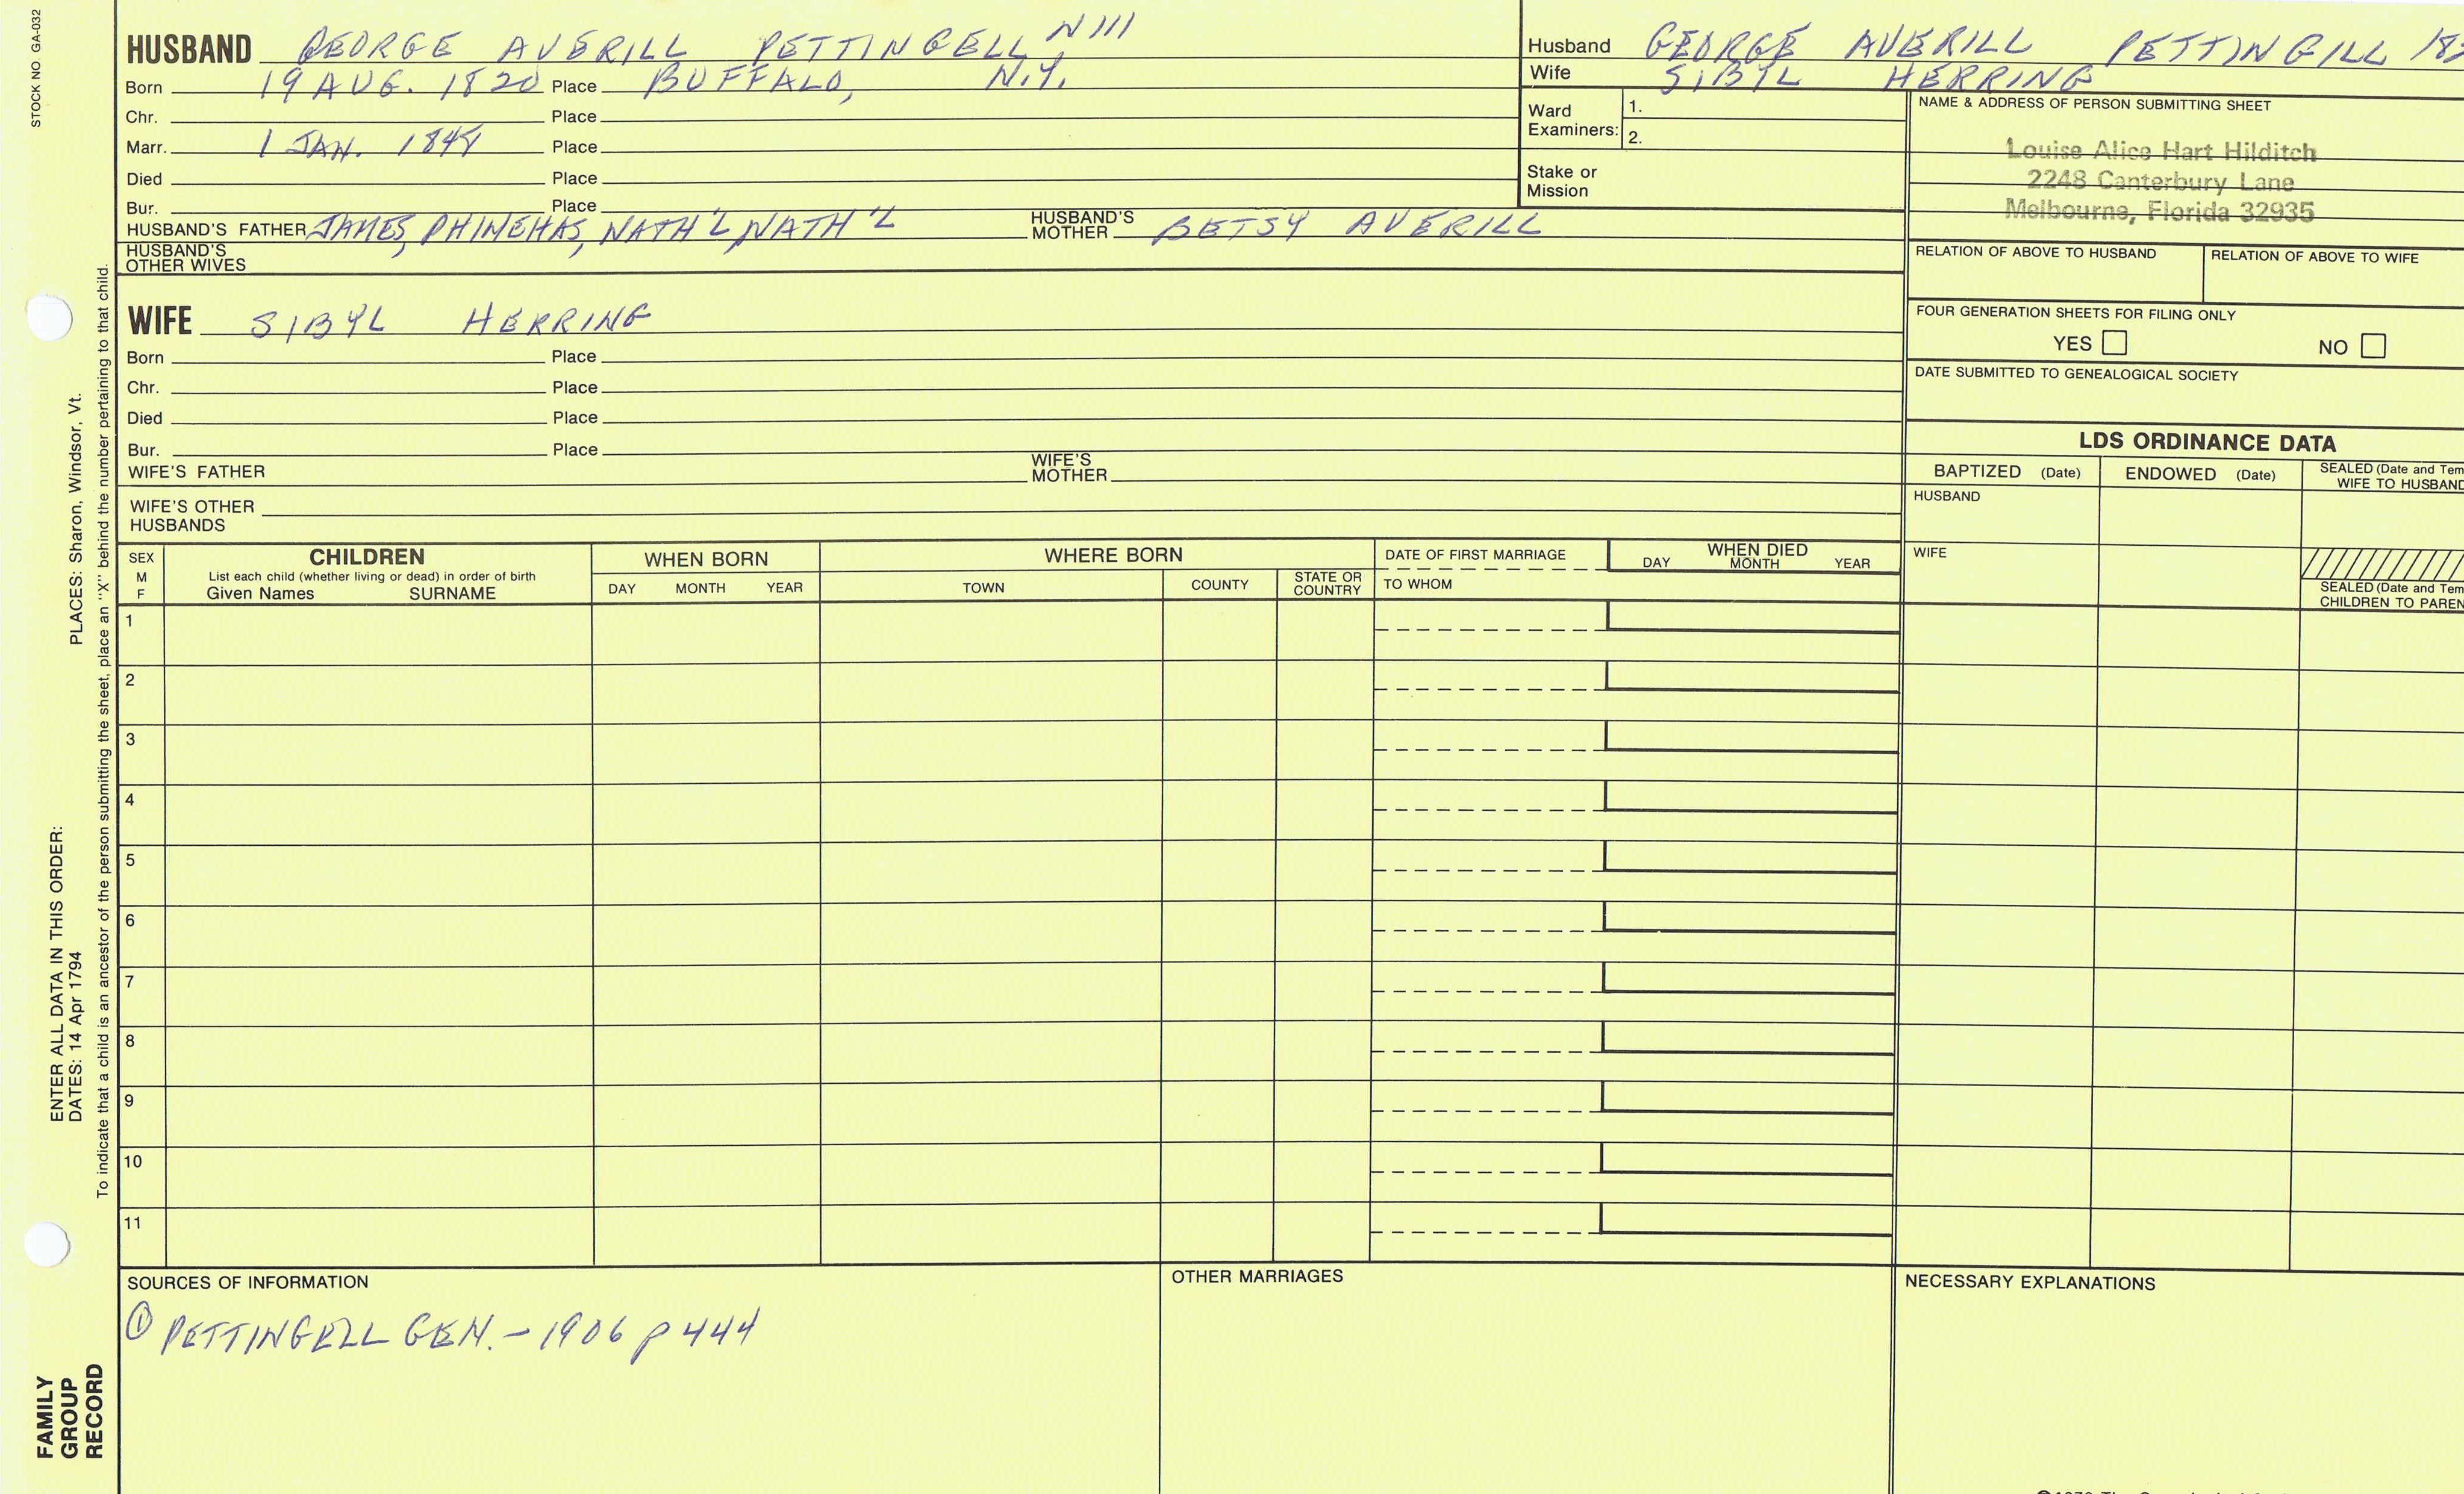 STOCK NO GA-032
HUSBAND GEORGE AVERILL PETTINGELL N111
Born 19 AUG. 1820 Place BUFFALO, N.Y.
Chr. Place
Marr. 1 JAN. Place
Died Place
Bur. Place
HUSBAND'S FATHER JAMES, PHINEHAS, NATH'L, NATH'L HUSBAND'S MOTHER BETSY AVERILL
HUSBAND'S OTHER WIVES
WIFE SIBYL HERRING
Born Place
Chr. Place
Died Place
Bur. Place
WIFE'S FATHER WIFE'S MOTHER
WIFE'S OTHER HUSBANDS
Husband GEORGE AVERILL PETTINGILL
Wife SIBYL HERRING
Ward Examiners: 1.
2.
Stake or Mission
NAME & ADDRESS OF PERSON SUBMITTING SHEET
Louise Alice Hart Hilditch
2248 Canterbury Lane
Melbourne, Florida 32935
RELATION OF ABOVE TO HUSBAND RELATION OF ABOVE TO WIFE
FOUR GENERATION SHEETS FOR FILING ONLY
YES NO
DATE SUBMITTED TO GENEALOGICAL SOCIETY
LDS ORDINANCE DATA
BAPTIZED (Date) ENDOWED (Date) SEALED (Date and Tem
WIFE TO HUSBAND
HUSBAND
WIFE
SEALED (Date and Tem
CHILDREN TO PAREN
SEX M F
CHILDREN
List each child (whether living or dead) in order of birth
Given Names SURNAME
WHEN BORN
DAY MONTH YEAR
WHERE BORN
TOWN COUNTY STATE OR COUNTRY
DATE OF FIRST MARRIAGE
TO WHOM
WHEN DIED
DAY MONTH YEAR
1
2
3
4
5
6
7
8
9
10
11
SOURCES OF INFORMATION
① PETTINGELL GEN. - 1906 p 444
OTHER MARRIAGES
NECESSARY EXPLANATIONS
ENTER ALL DATA IN THIS ORDER:
DATES: 14 Apr 1794 PLACES: Sharon, Windsor, Vt.
To indicate that a child is an ancestor of the person submitting the sheet, place an "X" behind the number pertaining to that child.
FAMILY
GROUP
RECORD